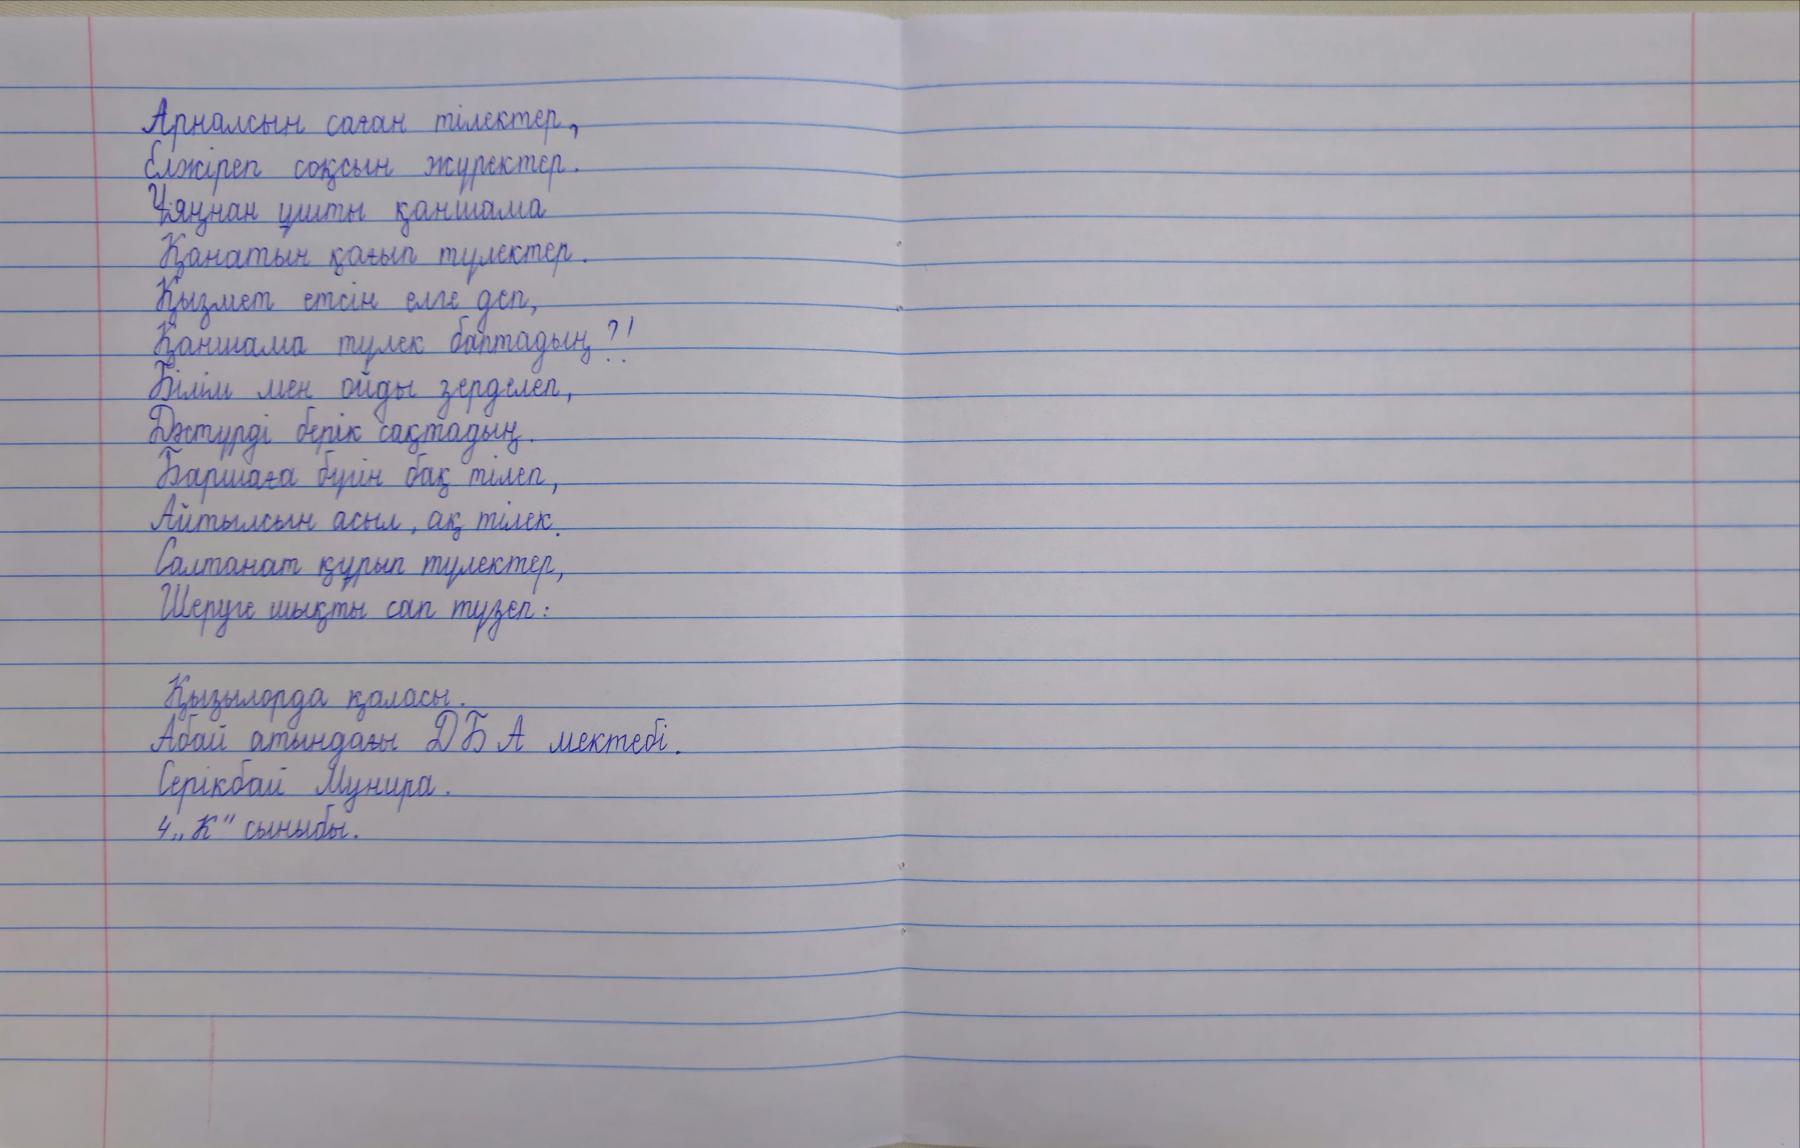 Арналсын саған тілектер,
Елжіреп соқсын жүректер.
Ұяңнан ұшты қаншама
Қанатын қағып түлектер.
Қызмет етсін елге деп,
Қаншама түлек баптадың?!
Білім мен ойды зерделеп,
Дәстүрді берік сақтадың.
Баршаға бүгін бақ тілеп,
Айтылсын асыл, ақ тілек.
Салтанат құрып түлектер,
Шеруге шықты сап түзеп:
Қызылорда қаласы.
Абай атындағы ДБА мектебі.
Серікбай Мунира.
4 „К" сыныбы.